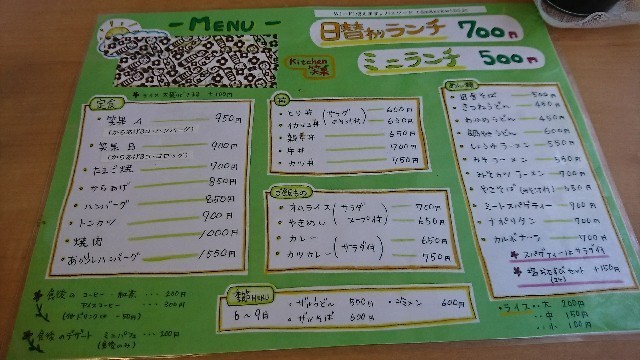 - MENU -
日替りランチ 700円
ミニランチ 500円
Kitchen
定食
950円
(からあげ3コ・ハンバーグ)
900円
(からあげ3コ・コロッケ)
たまご焼 700円
からあげ 850円
ハンバーグ 850円
トンカツ 900円
焼肉 1000円
おろしハンバーグ 1550円
食後の コーヒー・紅茶 ・・・ 200円
アイスコーヒー ・・・ 300円
食後のデザート ミニパフェ ・・・ 200円
(食後のみ)
丼
とり丼 600円
650円
650円
牛丼 700円
カツ丼 750円
(サラダ
ご飯もの
オムライス 700円
やきめし 650円
(サラダ
スープ付)
カレー 650円
カツカレー 750円
(サラダ付)
夏MENU
6～9月
・ザルうどん 500円
・ザルそば 600円
600円
めん類
500円
きつねうどん
わかめうどん 450円
600円
しょうゆラーメン 550円
みそラーメン
みそカツラーメン 900円
やきそば
ミートスパゲティー 700円
ナポリタン 700円
カルボナーラ 700円
スパゲティーはサラダ付
セット +150円
・ライス・・大 200円
・・中 150円
・・小 100円